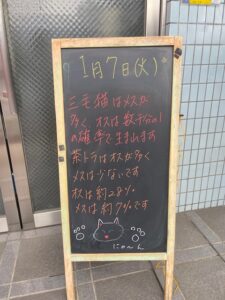 1月7日(火)
三毛猫はメスが
多く オスは数千分の1
の確率で生まれます
茶トラはオスが多く
メスは少ないです
オスは約28%
メスは約7%です
にゃ〜ん